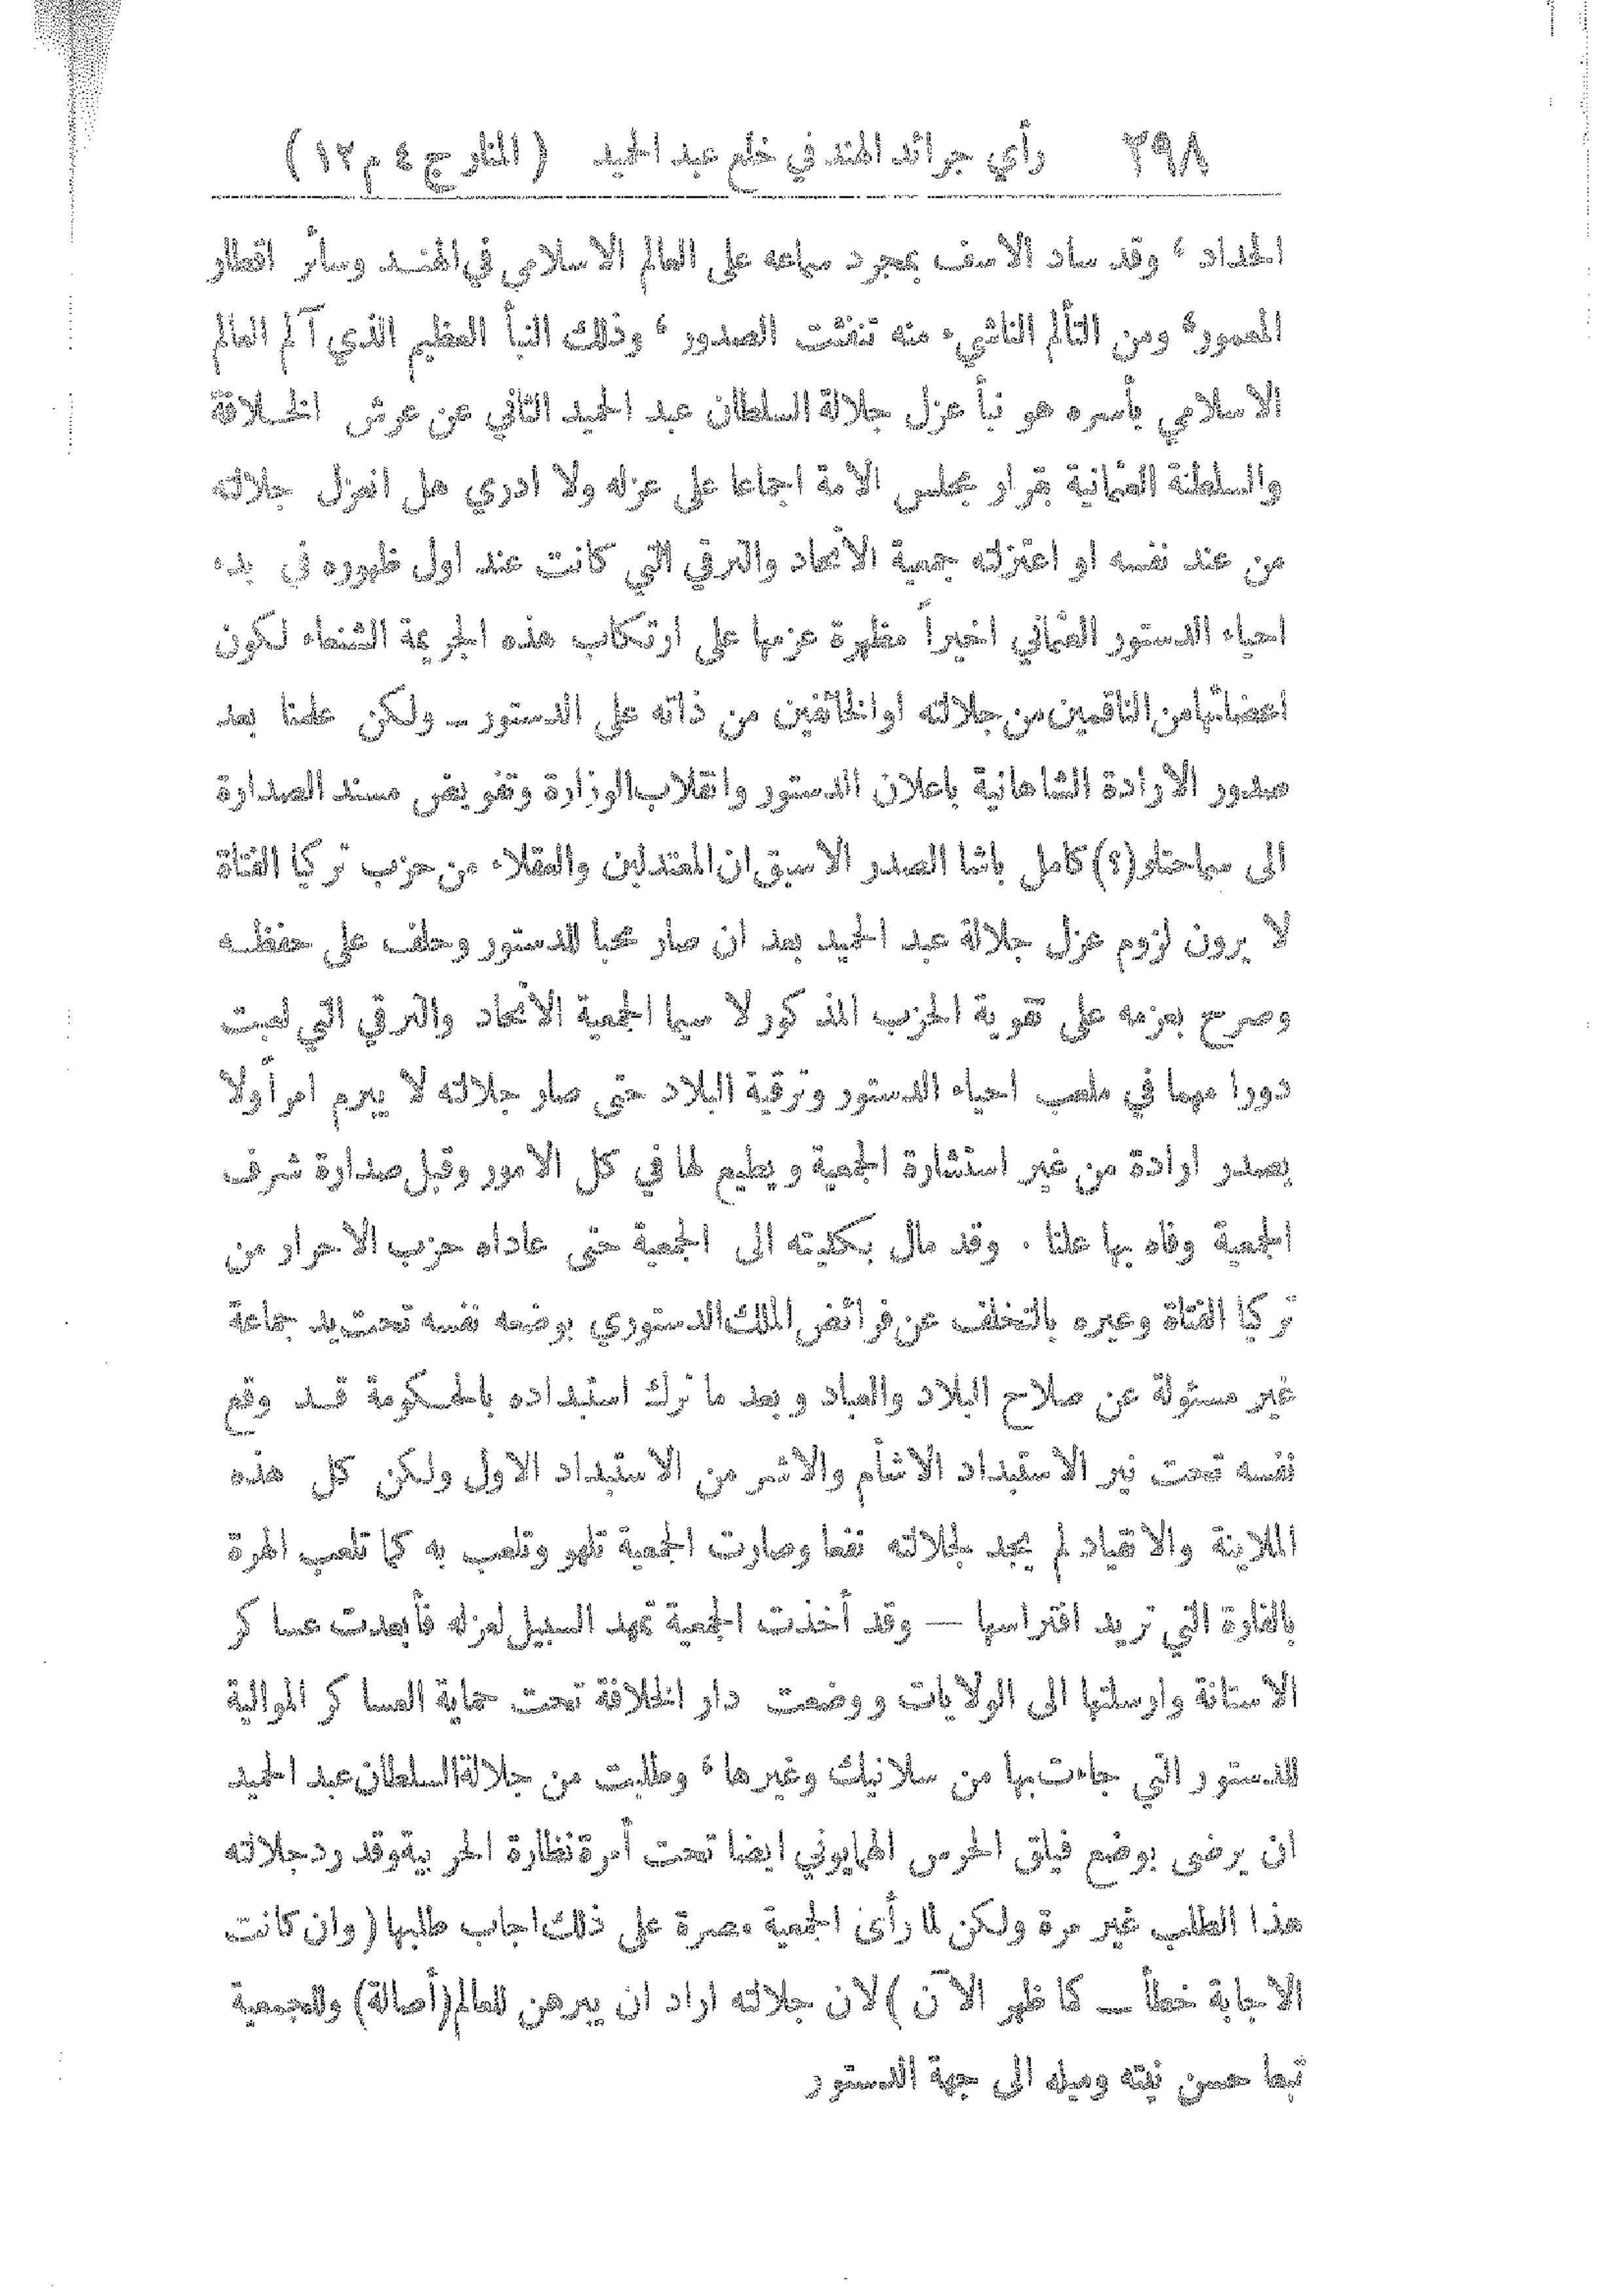 ٢٩٨ رأي جرائد الهند في خلع عبد الحميد ( المنار ج ٤ م ١٢ )
الحداد ، وقد ساد الاسف بمجرد سماعه على العالم الاسلامي في الهنـد وسائر اقطار
المعمور، ومن التألم الناشيء منه تنفثت الصدور ، وذلك النبأ العظيم الذي آلم العالم
الاسلامي بأسره هو نبأ عزل جلالة السلطان عبد الحميد الثاني عن عرش الخـلافة
والسلطنة العثمانية بقرار مجلس الأمة اجماعا على عزله ولا ادري هل انعزل جلالته
من عند نفسه او اعتزلته جمعية الاتحاد والترقي التي كانت عند اول ظهوره في بدء
احياء الدستور العثماني اخيراً مظهرة عزمها على ارتكاب هذه الجريمة الشنعاء لكون
اعضائها من الناقمين من جلالته او الخائفين من ذاته على الدستور ــ ولكن علمنا بعد
صدور الارادة الشاهانية باعلان الدستور وانقلاب الوزارة وتفويض مسند الصدارة
الى سماحتلو (؟) كامل باشا الصدر الاسبق ان المعتدلين والعقلاء من حزب تركيا الفتاة
لا يرون لزوم عزل جلالة عبد الحميد بعد ان صار محبا للدستور وحلف على حفظـه
وصرح بعزمه على تقوية الحزب المذكور لا سيما الجمعية الاتحاد والترقي التي لعبت
دورا مهما في ملعب احياء الدستور وترقية البلاد حتى صار جلالته لا يبرم امراً ولا
يصدر ارادة من غير استشارة الجمعية ويطيع لها في كل الامور وقبل صدارة شرف
الجمعية وفاه بها علنا . وقد مال بكليته الى الجمعية حتى عاداه حزب الاحرار من
تركيا الفتاة وعيره بالتخلف عن فرائض الملك الدستوري بوضعه نفسه تحت يد جماعة
غير مسئولة عن صلاح البلاد والعباد وبعد ما ترك استبداده بالحكومة قـد وقع
نفسه تحت نير الاستبداد الاشأم والاشر من الاستبداد الاول ولكن كل هذه
الملاينة والانقياد لم يجد لجلالته نفعا وصارت الجمعية تلهو وتلعب به كما تلعب الهرة
بالفارة التي تريد افتراسها — وقد أخذت الجمعية تمهد السبيل لعزله فأبعدت عساكر
الاستانة وارسلتها الى الولايات ووضعت دار الخلافة تحت حماية العساكر الموالية
للدستور التي جاءت بها من سلانيك وغيرها ، وطلبت من جلالة السلطان عبد الحميد
ان يرضى بوضع فيلق الحرس الهمايوني ايضا تحت أمرة نظارة الحربية وقد رد جلالته
هذا الطلب غير مرة ولكن لما رأى الجمعية مصرة على ذلك اجاب طلبها ( وان كانت
الاجابة خطأ ــ كما ظهر الآن ) لان جلالته اراد ان يبرهن للعالم (أصالة) وللجمعية
تبعا حسن نيته وميله الى جهة الدستور